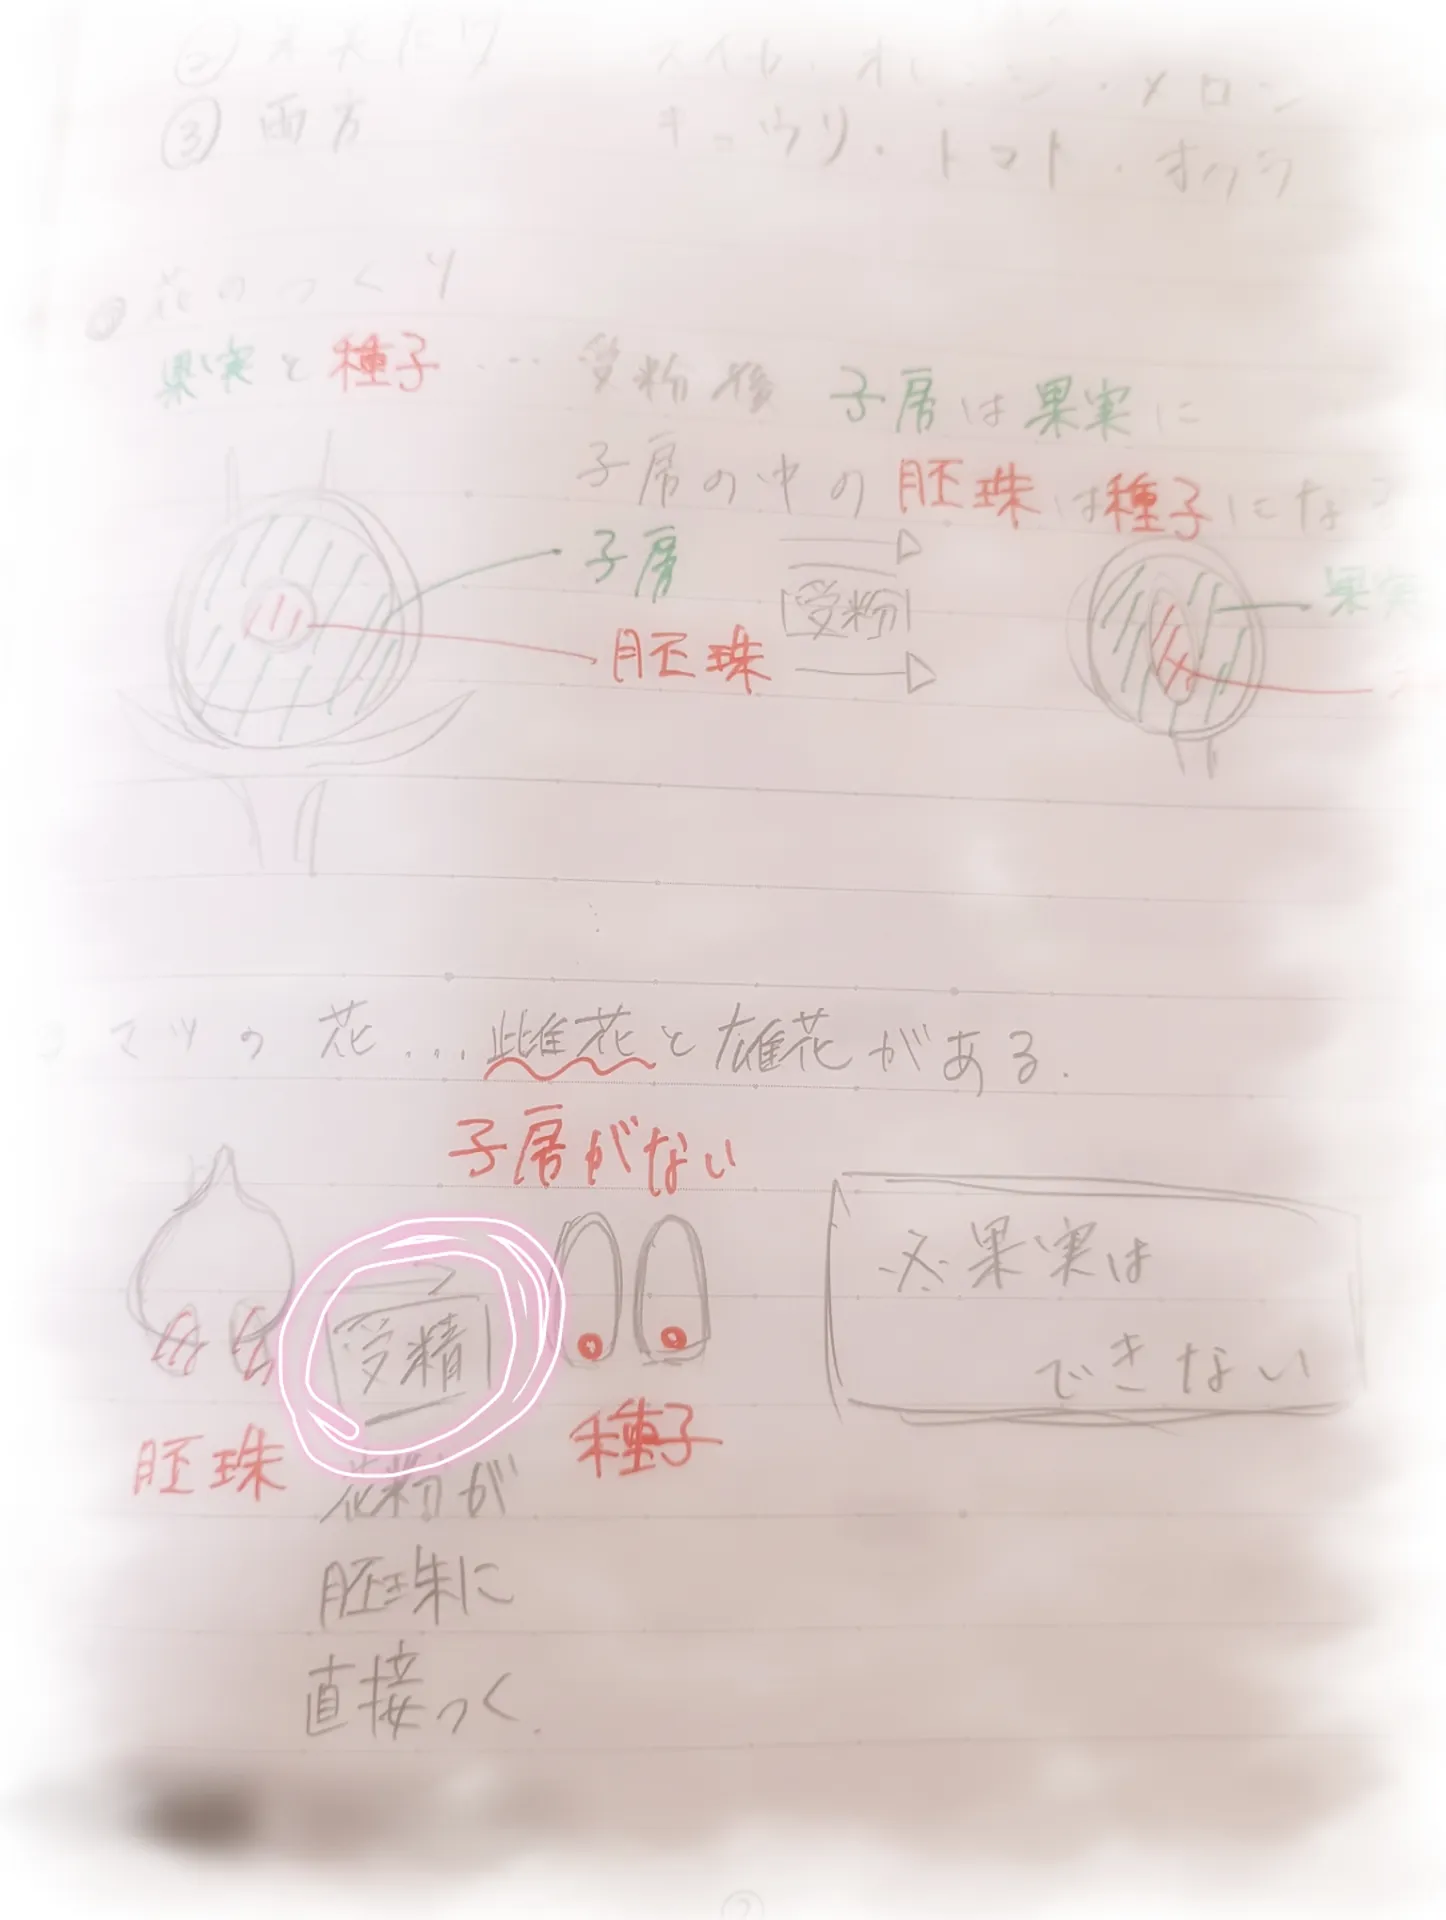 ③ 両方
スイカ・オレンジ・メロン
キュウリ・トマト・オクラ
花のつくり
果実と種子… 受粉後 子房は果実に
子房の中の胚珠は種子になる
子房
胚珠
受粉
果実
マツの花…雌花と雄花がある.
子房がない
受精
胚珠
種子
花粉が
胚珠に
直接つく.
※果実は
できない